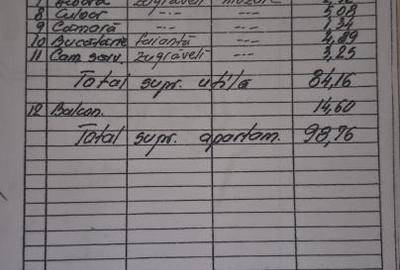 8 Culoar -"- -"- 3,08
9 Cămară -"- -"- 1,34
10 Bucătărie faianță -"-
11 Cam. serv. zugrăveli -"- 3,25
Total supr. utilă 84,16
12 Balcon. 14,60
Total supr. apartam. 98,76